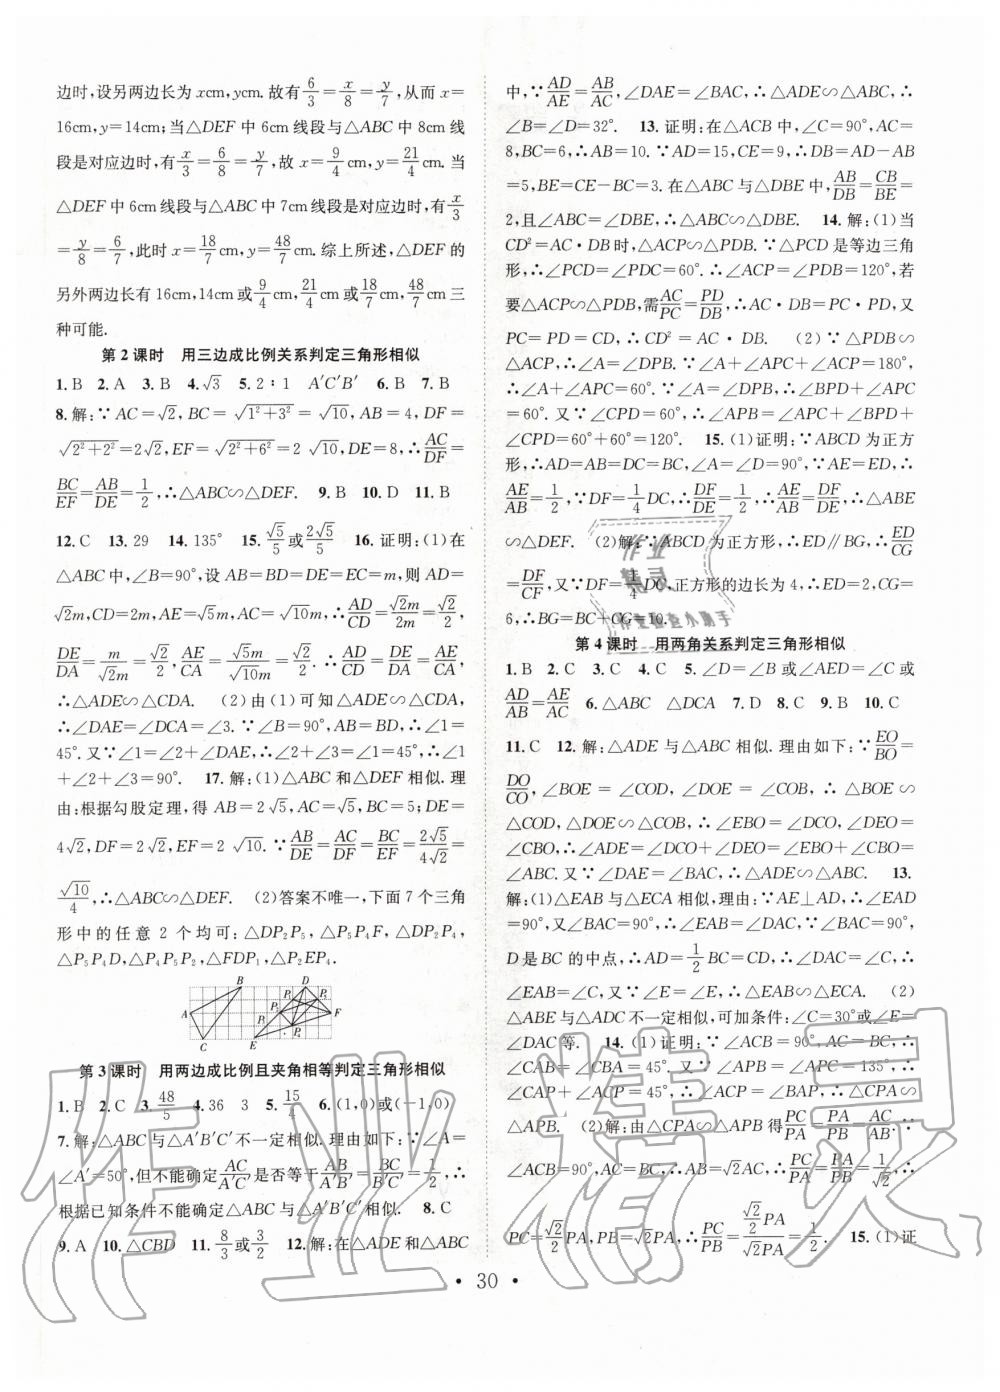 边时,设另两边长为 xcm,ycm. 故有6/3=x/8=y/7,从而 x=
16cm,y=14cm;当△DEF 中 6cm 线段与△ABC 中 8cm 线
段是对应边时,有x/3=6/8=y/7,故 x=9/4cm,y=21/4cm. 当
△DEF 中 6cm 线段与△ABC 中 7cm 线段是对应边时,有x/3
=y/8=6/7,此时 x=18/7cm,y=48/7cm. 综上所述,△DEF 的
另外两边长有 16cm,14cm 或9/4cm,21/4cm 或18/7cm,48/7cm 三
种可能.
第 2 课时 用三边成比例关系判定三角形相似
1. B 2. A 3. B 4. √3 5. 2∶1 A′C′B′ 6. B 7. B
8. 解:∵AC=√2,BC=√(1²+3²)=√10,AB=4,DF=
√(2²+2²)=2√2,EF=√(2²+6²)=2√10,DE=8,∴AC/DF=
BC/EF=AB/DE=1/2,∴△ABC∽△DEF. 9. B 10. D 11. B
12. C 13. 29 14. 135° 15. √5/5或2√5/5 16. 证明:(1)在
△ABC 中,∠B=90°,设 AB=BD=DE=EC=m,则 AD=
√2m,CD=2m,AE=√5m,AC=√10m,∴AD/CD=√2m/2m=√2/2,
DE/DA=m/√2m=√2/2,AE/CA=√5m/√10m=√2/2,∴AD/CD=DE/DA=AE/CA,
∴△ADE∽△CDA. (2)由(1)可知△ADE∽△CDA,
∴∠DAE=∠DCA=∠3. ∵∠B=90°,AB=BD,∴∠1=
45°. 又∵∠1=∠2+∠DAE,∴∠2+∠3=∠1=45°,∴∠1
+∠2+∠3=90°. 17. 解:(1)△ABC 和△DEF 相似. 理
由:根据勾股定理,得 AB=2√5,AC=√5,BC=5;DE=
4√2,DF=2√2,EF=2√10. ∵AB/DE=AC/DF=BC/EF=2√5/4√2=
√10/4,∴△ABC∽△DEF. (2)答案不唯一,下面 7 个三角
形中的任意 2 个均可:△DP₂P₅,△P₅P₄F,△DP₂P₄,
△P₅P₄D,△P₄P₅P₂,△FDP₁,△P₂EP₄.
A B C D E F
第 3 课时 用两边成比例且夹角相等判定三角形相似
1. B 2. C 3. 48/5 4. 36 3 5. 15/4 6. (1,0)或(-1,0)
7. 解:△ABC 与△A′B′C′不一定相似. 理由如下:∵∠A=
∠A′=50°,但不能确定AC/A′C′是否等于AB/A′B′或BC/B′C′,∴
根据已知条件不能确定△ABC 与△A′B′C′相似. 8. C
9. A 10. △CBD 11. 8/3或3/2 12. 解:在△ADE 和△ABC
中,∵AD/AE=AB/AC,∠DAE=∠BAC,∴△ADE∽△ABC,∴
∠B=∠D=32°. 13. 证明:在△ACB 中,∠C=90°,AC=
8,BC=6,∴AB=10. ∵AD=15,CE=9,∴DB=AD-AB
=5,BE=CE-BC=3. 在△ABC 与△DBE 中,AB/DB=CB/BE=
2,且∠ABC=∠DBE,∴△ABC∽△DBE. 14. 解:(1)当
CD²=AC·DB 时,△ACP∽△PDB. ∵△PCD 是等边三角
形,∴∠PCD=∠PDC=60°. ∴∠ACP=∠PDB=120°,若
要△ACP∽△PDB,需AC/PC=PD/DB,∴AC·DB=PC·PD,又
PC=PD=CD,∴CD²=AC·DB. (2)∵△PDB∽
△ACP,∴∠A=∠BPD. ∵∠A+∠APC+∠ACP=180°,
∴∠A+∠APC=60°. ∵∠A=∠BPD,∴∠BPD+∠APC
=60°. 又∵∠CPD=60°,∴∠APB=∠APC+∠BPD+
∠CPD=60°+60°=120°. 15. (1)证明:∵ABCD 为正方
形,∴AD=AB=DC=BC,∠A=∠D=90°,∵AE=ED,∴
AE/AB=1/2,∵DF=1/4DC,∴DF/DE=1/2,∴AE/AB=DF/DE,∴△ABE
∽△DEF. (2)解:∵ABCD 为正方形,∴ED∥BG,∴ED/CG=
DF/CF,又∵DF=1/4DC,正方形的边长为 4,∴ED=2,CG=
6,∴BG=BC+CG=10.
第 4 课时 用两角关系判定三角形相似
1. B 2. C 3. C 4. C 5. ∠D=∠B 或∠AED=∠C 或
AD/AB=AE/AC 6. △ABC △DCA 7. D 8. C 9. B 10. C
11. C 12. 解:△ADE 与△ABC 相似. 理由如下:∵EO/BO=
DO/CO,∠BOE=∠COD,∠DOE=∠COB,∴△BOE∽
△COD,△DOE∽△COB,∴∠EBO=∠DCO,∠DEO=
∠CBO,∴∠ADE=∠DCO+∠DEO=∠EBO+∠CBO=
∠ABC. 又∵∠DAE=∠BAC,∴△ADE∽△ABC. 13.
解:(1)△EAB 与△ECA 相似,理由:∵AE⊥AD,∴∠EAD
=90°,又∠BAC=90°,∴∠EAB=∠DAC,∵∠BAC=90°,
D 是 BC 的中点,∴AD=1/2BC=CD,∴∠DAC=∠C,∴
∠EAB=∠C/∵∠E=∠E,∴△EAB∽△ECA. (2)
△ABE 与△ADC 不一定相似,可加条件:∠C=30°或∠E=
∠DAC 等. 14. (1)证明:∵∠ACB=90°,AC=BC,∴
∠CAB=∠CBA=45°. ∵∠CPA=∠APB=135°,∴∠CAP
+∠ACP=45°,∠CAP+∠PAB=45°,∴∠ACP=∠PAB. 又∠CPA=∠APB,∴△CPA∽
△APB. (2)解:由△CPA∽△APB 得PC/PA=PA/PB=AC/AB. ∵
∠ACB=90°,AC=BC,∴AB=√2AC,∴PC/PA=PA/PB=1/√2,∴
PC=√2/2PA,PB=√2PA,∴PC/PB=(√2/2PA)/(√2PA)=1/2. 15. (1)证
·30·
作业精灵